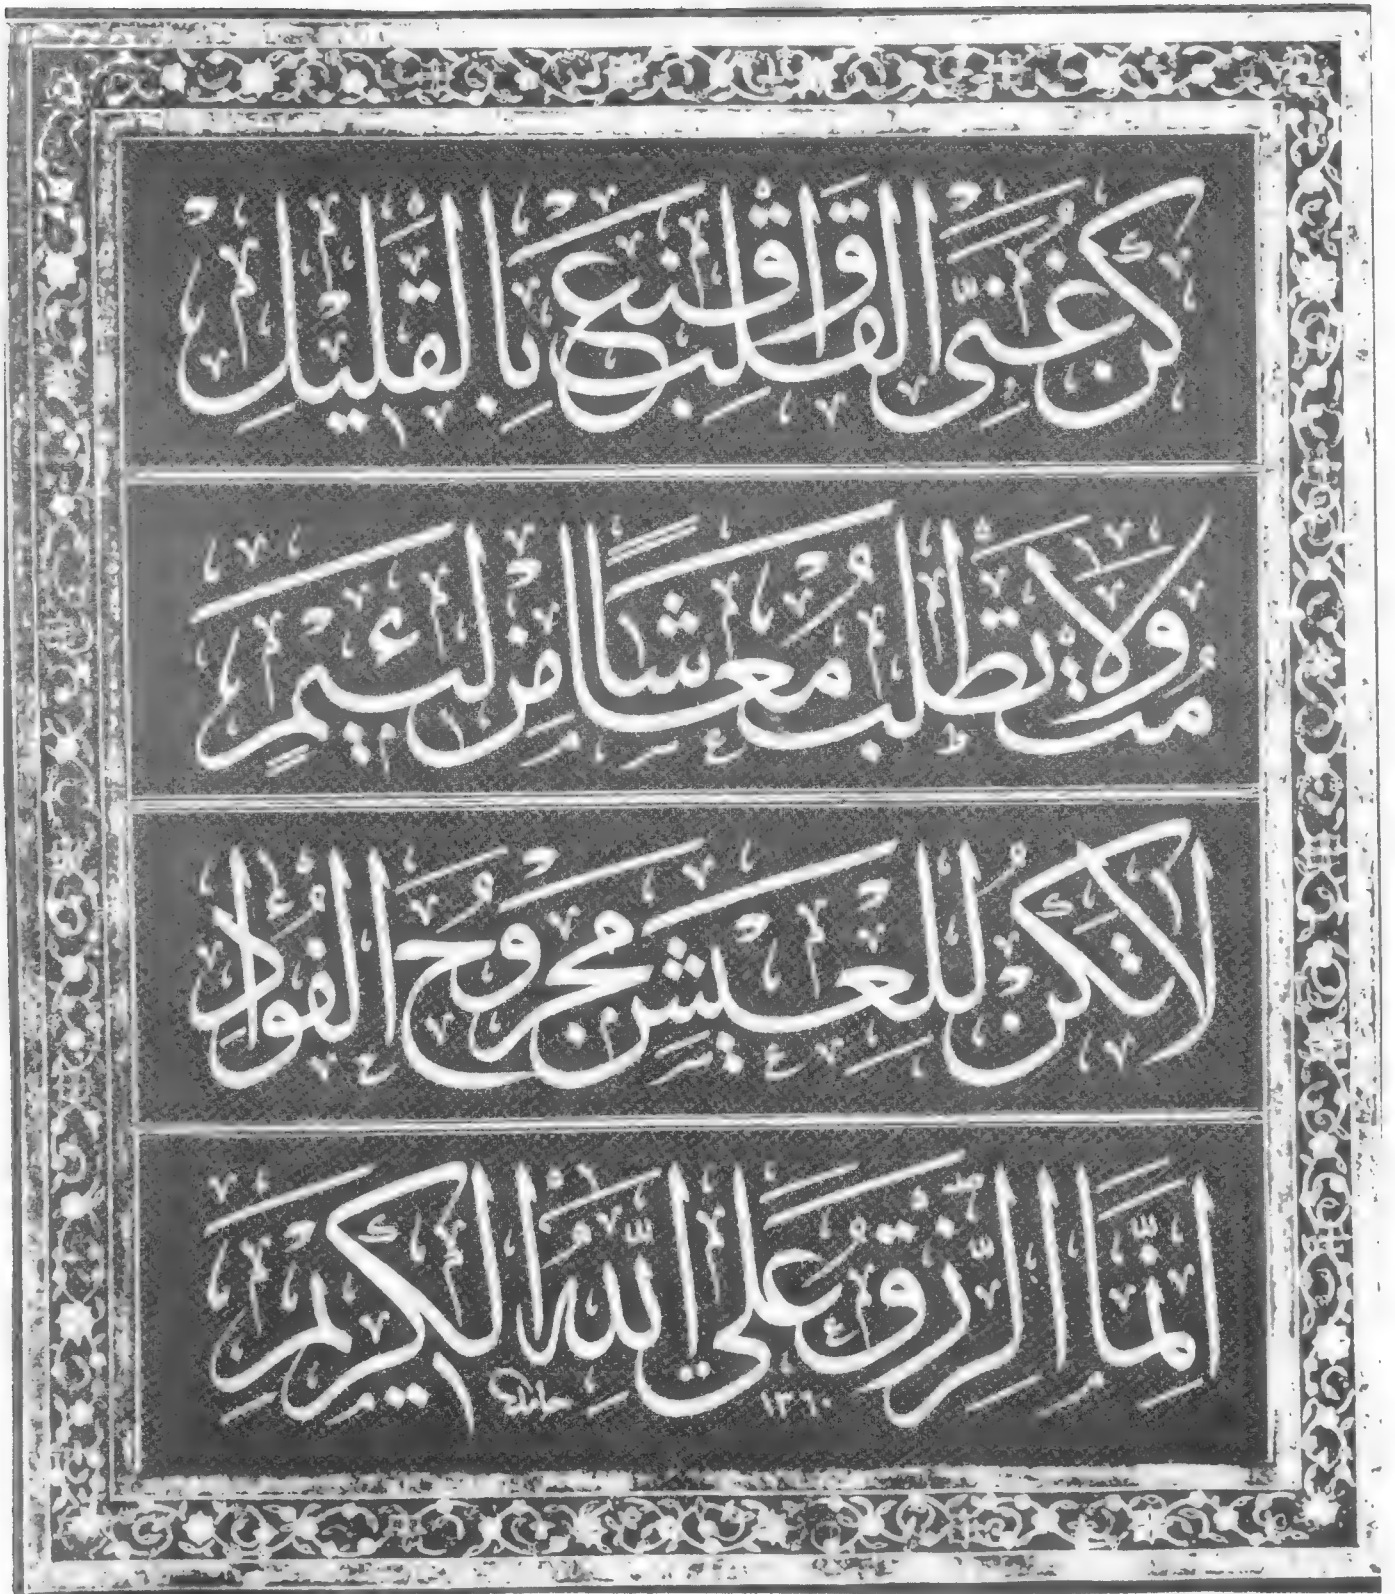 كُنْ غَنِيَّ الْقَلْبِ وَاقْنَعْ بِالْقَلِيلْ
مُتْ وَلَا تَطْلُبْ مَعَاشًا مِنْ لَئِيمْ
لَا تَكُنْ لِلْعَيْشِ مَجْرُوحَ الْفُؤَادْ
إِنَّمَا الرِّزْقُ عَلَى اللّٰهِ الْكَرِيمْ
حامد ١٣٦٠